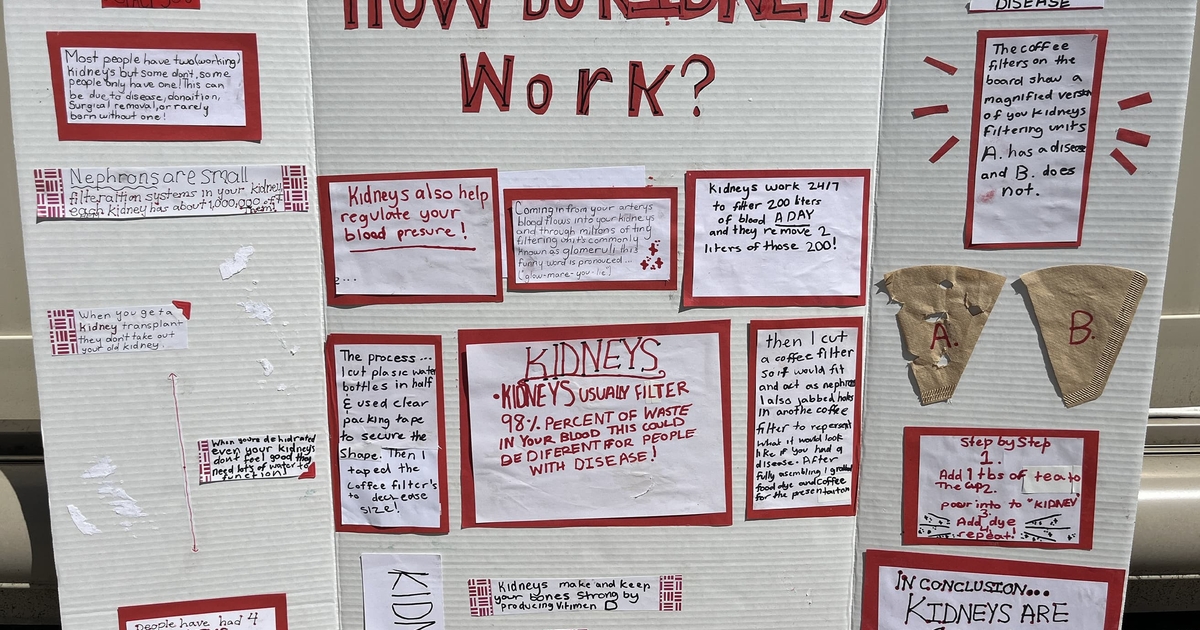 HOW DO KIDNEYS
WORK?
Most people have two(working)
kidneys but some don't, some
people only have one! This can
be due to disease, donaition,
Surgical removal, or rarely
born without one!
Nephrons are small
filteration systems in your kidney
each kidney has about 1,000,000 of
them!
When you get a
kidney transplant
they don't take out
your old kidney.
When you're dehidrated
even your kidneys
don't feel good they
need lots of water to
function!
People have had 4
Kidneys also help
regulate your
blood presure!
e...
Coming in from your arterys
blood flows into your kidneys
and through milrons of tiny
filtering units commonly
known as glomeruli this
funny word is pronouced...
("glow-mare-you-lie")
Kidneys work 24/7
to filter 200 liters
of blood A DAY
and they remove 2
liters of those 200!
The process...
I cut plasic water
bottles in half
& used clear
packing tape
to secure the
Shape. Then I
taped the
coffee filter's
to decrease
size!
KIDNEYS
•KIDNEYS USUALLY FILTER
98% PERCENT OF WASTE
IN YOUR BLOOD THIS COULD
BE DIFERENT FOR PEOPLE
WITH DISEASE!
then I cut
a coffee filter
so it would fit
and act as nephrons
I also jabbed holes
in anothe coffee
filter to repersent
what it would look
like if you had a
disease. After
fully asembling I
food dye and coffee
for the presentation
KIDN
Kidneys make and keep
your bones strong by
producing Vitimen D
DISEASE
The coffee
filters on the
board show a
magnified version
of you kidneys
filtering units
A. has a disease
and B. does
not.
A.
B.
Step by Step
1.
Add 1 tbs of tea to
The cup 2.
poor into to "KIDNEY"
3.
Add dye
4.
repeat!
IN CONCLUSION...
KIDNEYS ARE